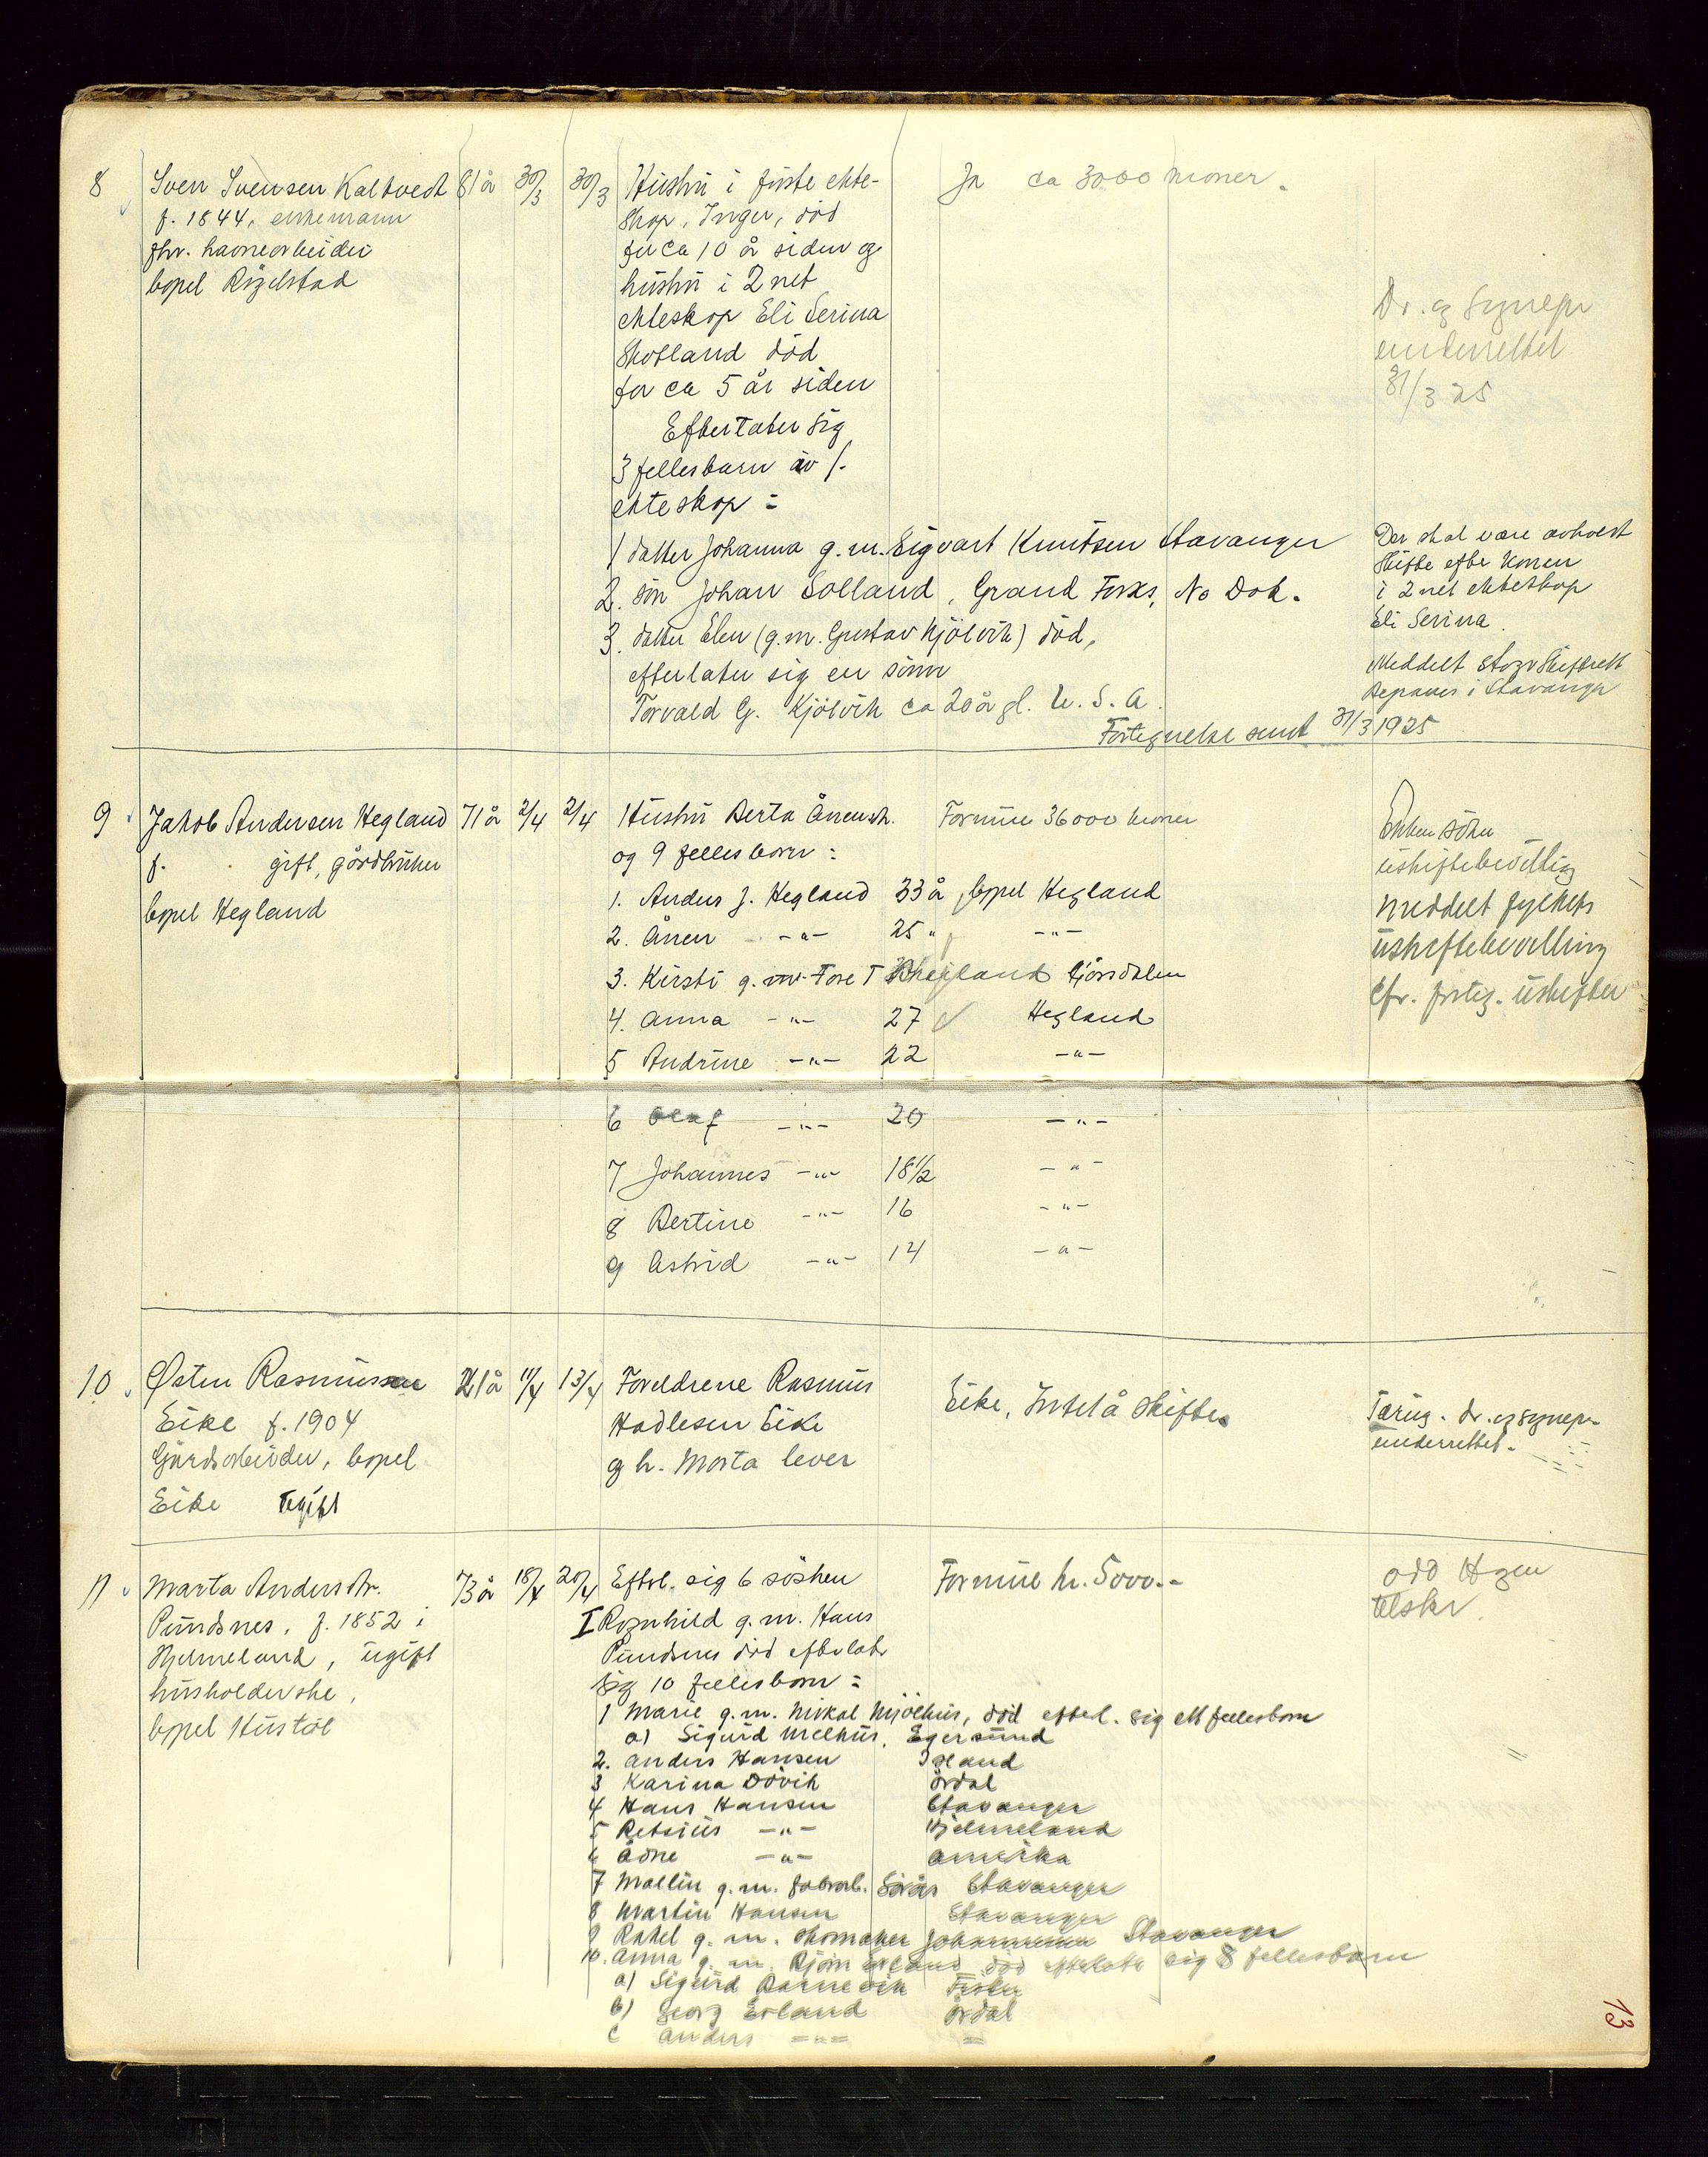 8 Sven Svensen Kaltvedt 81 år 30/3 30/3
f. 1844, enkemann
fhv. havnearbeider
bopel
Hustru i første ekte-
skap, Inger, død
for ca 10 år siden og
hustru i 2net
ekteskap Eli Serina
Skotland død
for ca 5 år siden
Efterlater sig
3 fellesbarn av 1.
ekteskap:
1 datter Johanna g.m. Sigvart Knutsen Stavanger
2. søn Johan Solland, Grand Forks, No Dak.
3. datter Elen (g.m. Gustav Kjölvik) död,
efterlater sig en sönn
Torvald G. Kjölvik ca 20 år gl. U.S.A.
Ja ca 3000 kroner.
Dr. og
underrettet
31/3 25
Der skal være avholdt
skifte efter konen
i 2net ekteskap
Eli Serina.
Meddelt
i Stavanger
Fortegnelse sendt 31/3 1925
9 Jakob Andersen Hegland 71 år 2/4 2/4
f. gift, gårdbruker
bopel Hegland
Hustru Berta Ånensdt.
og 9 fellesbarn:
1. Anders J. Hegland 33 år, bopel Hegland
2. Ånen -"- 25 " -"-
3. Kirsti g.m. Tore T Gjersdalen
4. Anna -"- 27 Hegland
5 Andrine -"- 22 -"-
6 Olaf -"- 20 -"-
7 Johannes -"- 18 1/2 -"-
8 Bertine -"- 16 -"-
9 Astrid -"- 14 -"-
Formue 36000 kroner
Enken
uskiftebevilling
meddelt fylkets
uskiftebevilling
Cfr. forteg. uskifter
10 Østen Rasmussen 21 år 11/4 13/4
Eike f. 1904
Gårdsarbeider, bopel
Eike ugift
Foreldrene Rasmus
Hadlesen Eike
og h. Marta lever
Eike, Intet å skifte
dr. og
underrettet.
11 Marta Andersdtr. 73 år 18/4 20/4
Pundsnes, f. 1852 i
Hjelmeland, ugift
husholderske,
bopel
Efterl. sig 6 søsken
I Ragnhild g.m. Hans
Pundsnes död efterlater
sig 10 fellesbarn:
1 Marie g.m. Mikal Mjölhus, död efterl. sig ett fellesbarn
a) Sigurd Melhus, Egersund
2. Anders Hansen
3 Karina Dövik Årdal
4 Hans Hansen Stavanger
5 Retsius -"- Hjelmeland
6 Ådne -"- Amerika
7 Mallin g.m. Stavanger
8 Martin Hansen Stavanger
9 Rakel g.m. skomaker Johannessen Stavanger
10. Anna g.m. Björn död efterlater sig 8 fellesbarn
a) Sigurd Barnevik Fister
b) Georg Årdal
c Anders -"- =
Formue kr. 5000.-
13